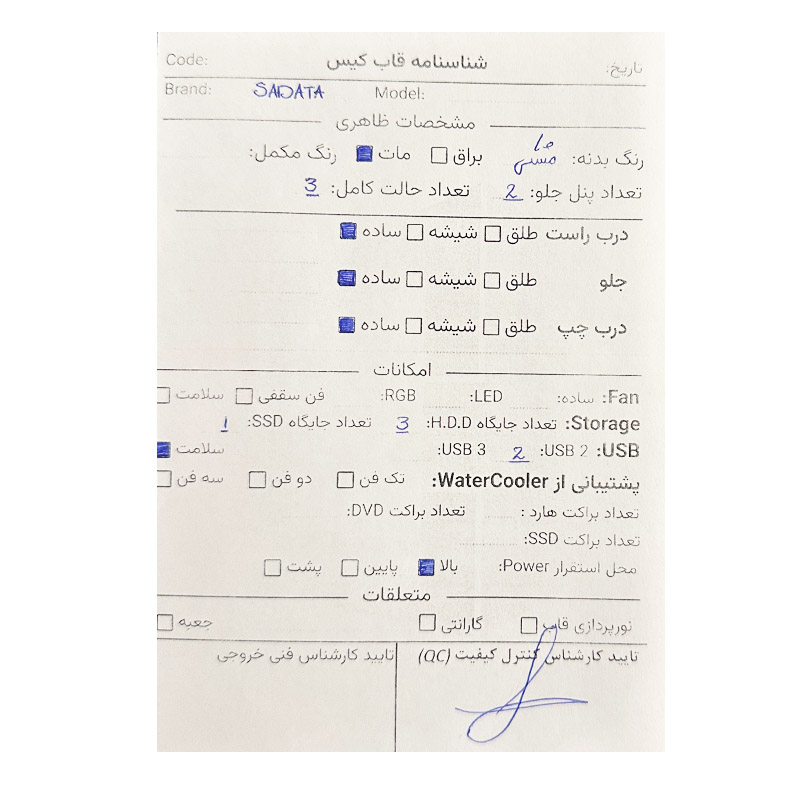 تاریخ: شناسنامه قاب کیس Code:
Brand: SADATA Model:
مشخصات ظاهری
رنگ بدنه: مشکی براق مات رنگ مکمل:
تعداد پنل جلو: 2 تعداد حالت کامل: 3
درب راست طلق شیشه ساده
جلو طلق شیشه ساده
درب چپ طلق شیشه ساده
امکانات
Fan: ساده: LED: RGB: فن سقفی سلامت
Storage: تعداد جایگاه H.D.D: 3 تعداد جایگاه SSD: 1
USB: USB 2: 2 USB 3: سلامت
پشتیبانی از WaterCooler: تک فن دو فن سه فن
تعداد براکت هارد : تعداد براکت DVD:
تعداد براکت SSD:
محل استقرار Power: بالا پایین پشت
متعلقات
نورپردازی قاب گارانتی جعبه
تایید کارشناس کنترل کیفیت (QC) تایید کارشناس فنی خروجی